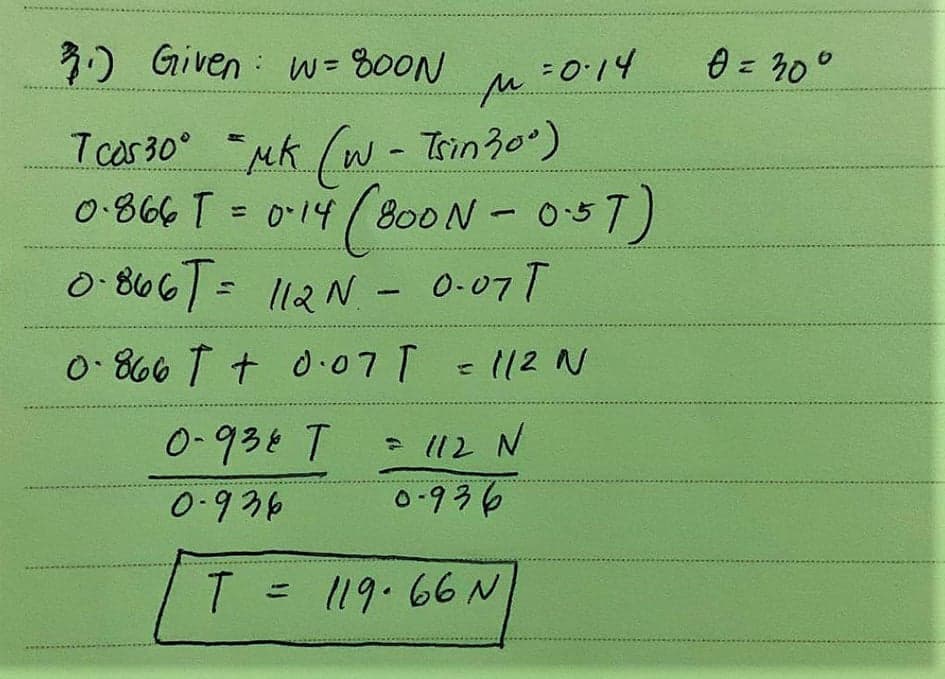 3.) Given: W = 800N μ = 0.14 θ = 30°
T cos 30° = μk (W - Tsin30°)
0.866 T = 0.14 (800 N - 0.5 T)
0.866 T = 112 N - 0.07 T
0.866 T + 0.07 T = 112 N
0.936 T = 112 N
0.936 0.936
T = 119.66 N